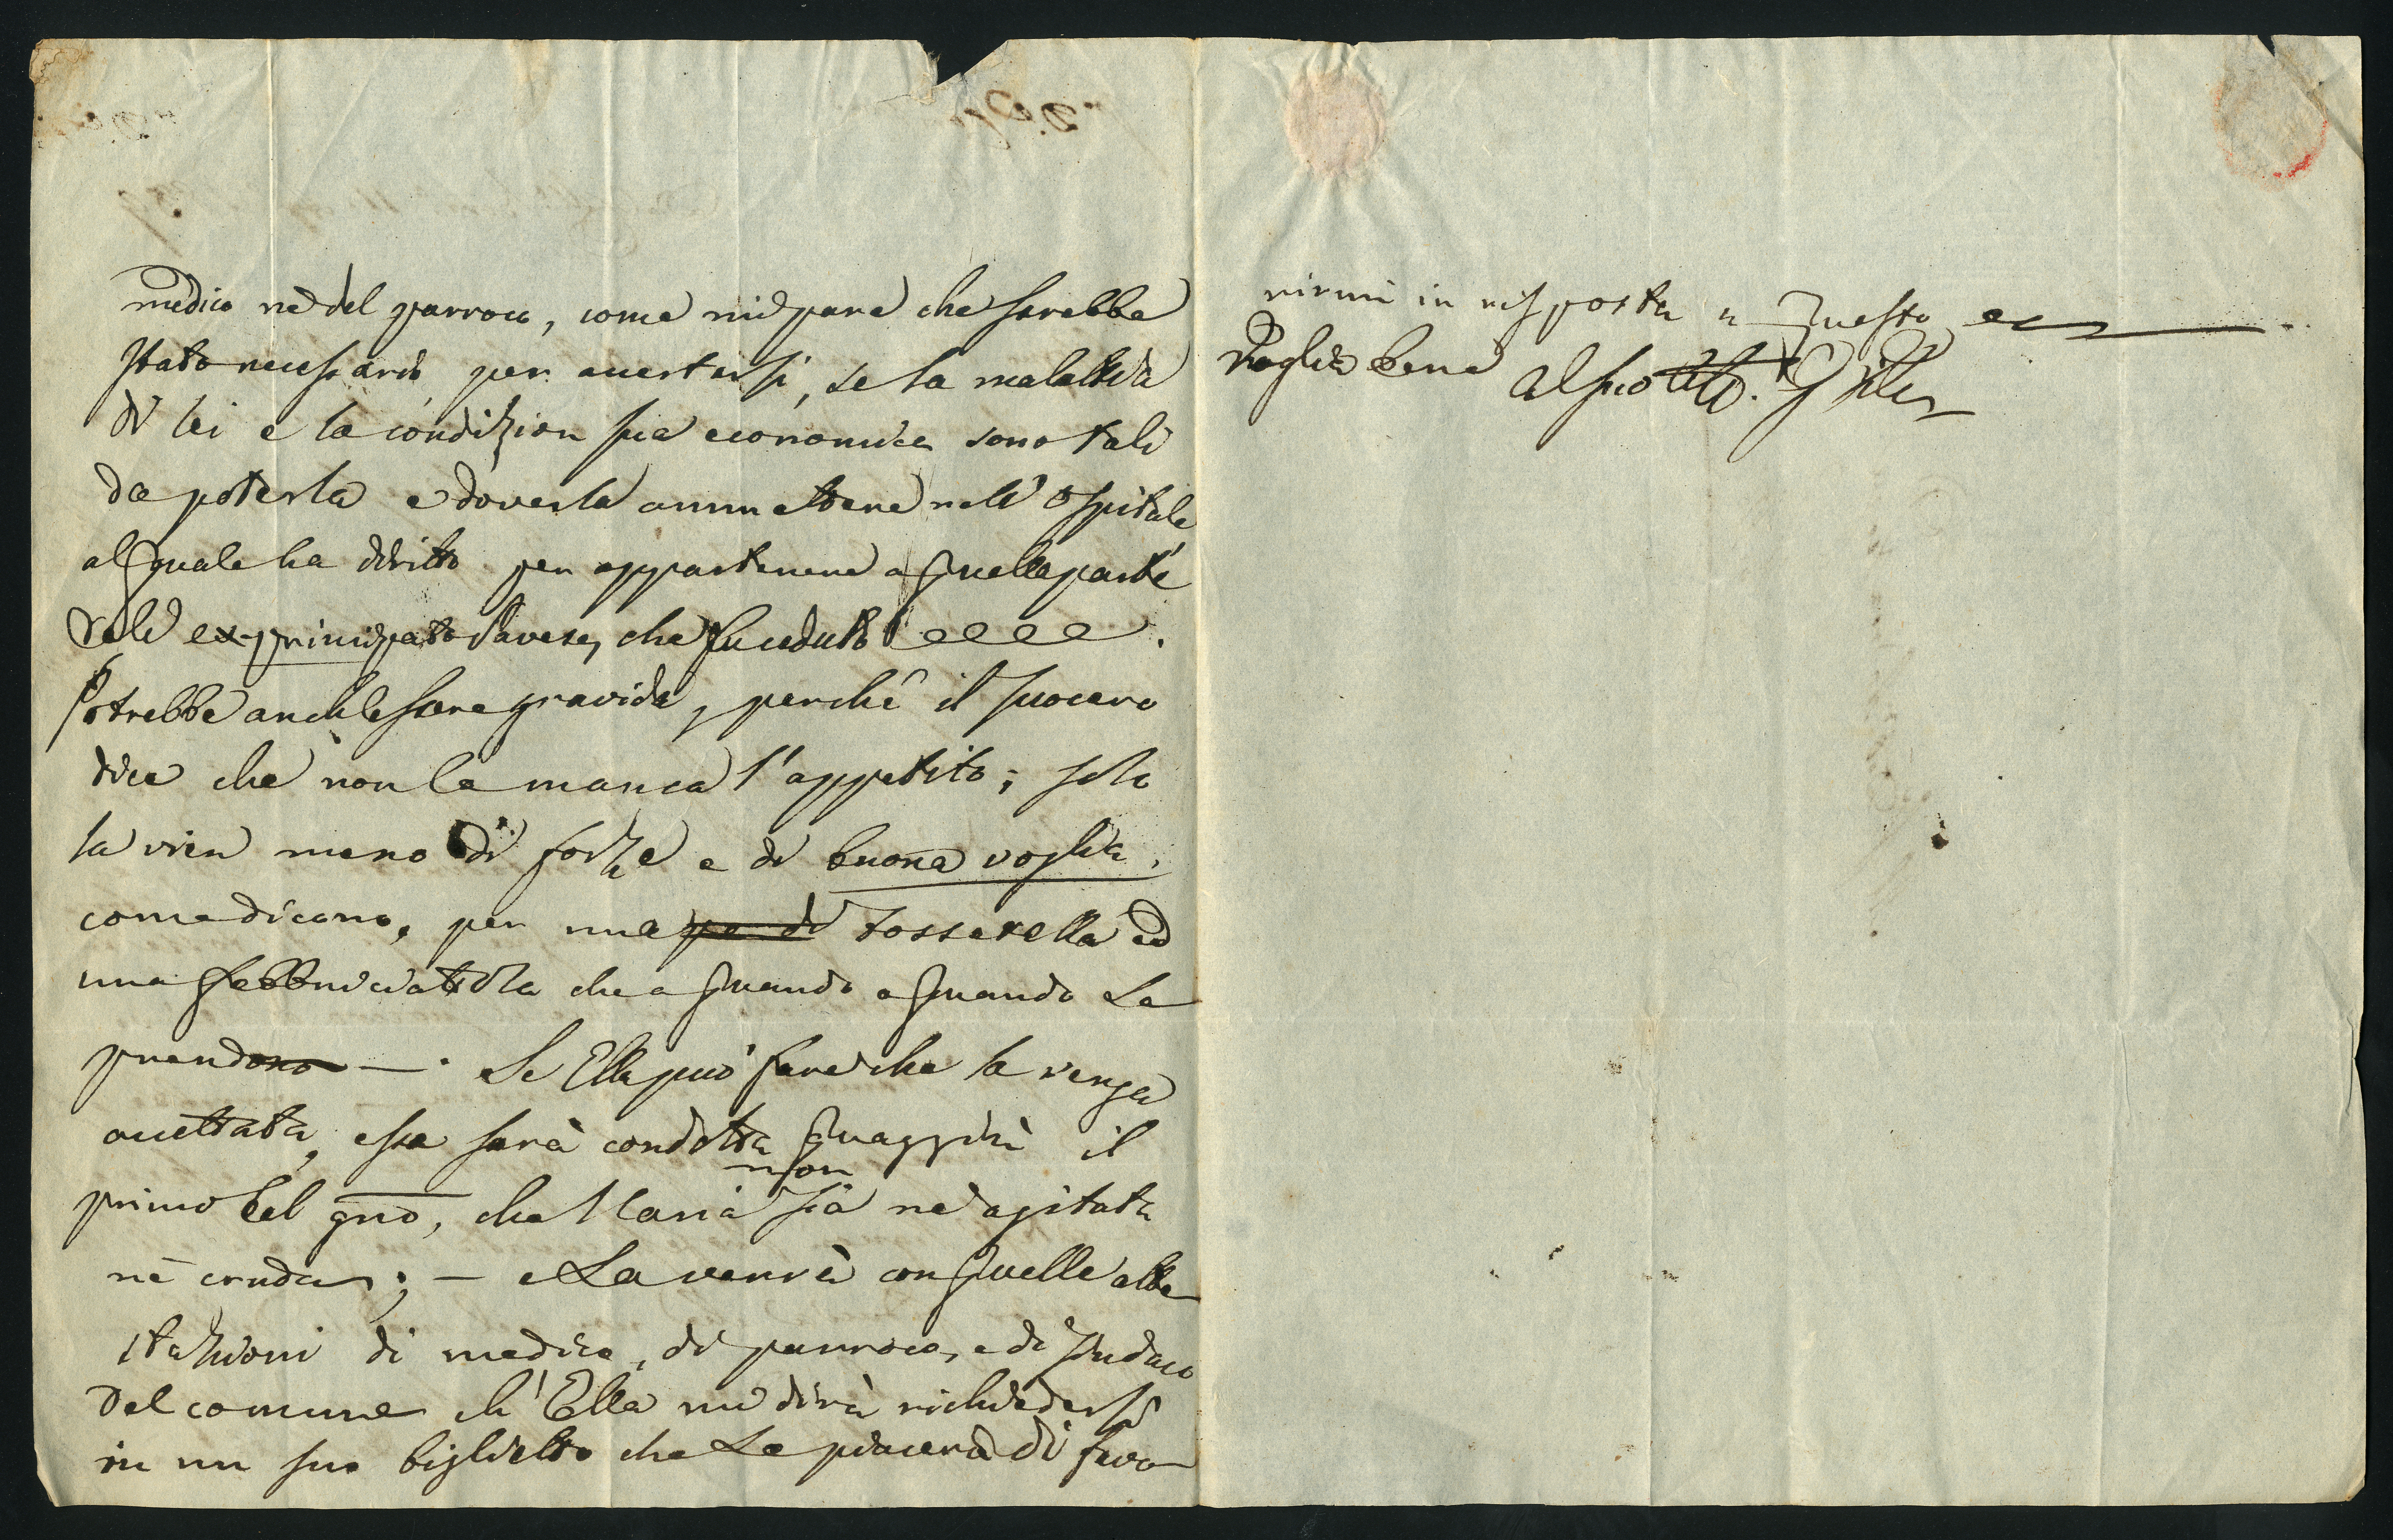 medico nè del parroco, come mi pare che sarebbe
stato necessario, per accertarsi, se la malattia
di lei e la condizion sua economica sono tali
da poterla e doverla ammettere nell'ospitale
al quale ha diritto per appartenere a quella parte
dell' ex-principato Pavese, che fu ceduto
Potrebbe anch'essere gravida, perchè il suocero
dice che non le manca l'appetito; solo
la vien meno di forze e di buona voglia,
come dicono, per una tosserella ed
una febbriciattola che a quando a quando La
prendono —. Se Ella può fare che la venga
accettata, essa sarà condotta quaggiù il
primo bel gno, che l'aria non sia nè agitata
nè cruda; — e La verrà con quelle atte
stazioni di medico, di parroco, e di sindaco
del comune ch'Ella mi dirà richiedersi
in un suo biglietto che Le piacerà di favo
rirmi in risposta a questo
Voglia bene al suo